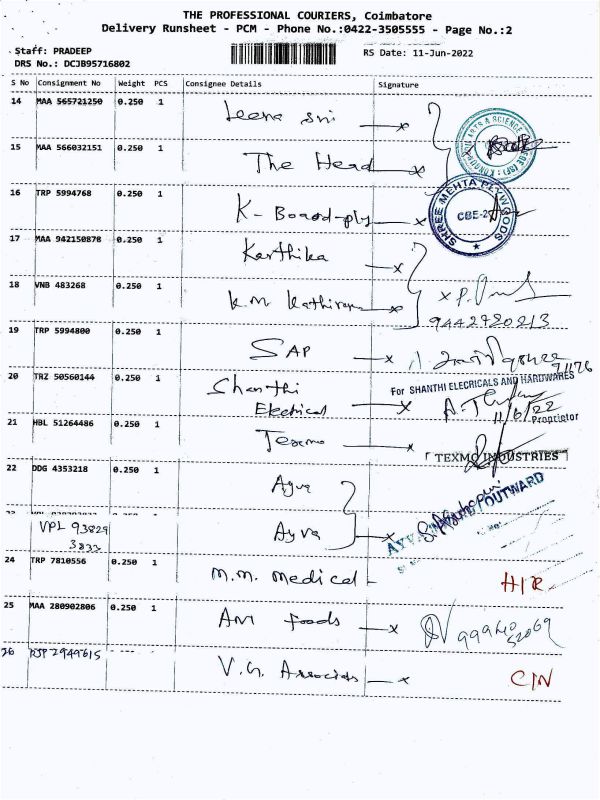 THE PROFESSIONAL COURIERS, Coimbatore
Delivery Runsheet - PCM - Phone No.:0422-3505555 - Page No.:2
Staff: PRADEEP
RS Date: 11-Jun-2022
DRS No.: DCJB95716802
S No Consignment No Weight PCS Consignee Details Signature
14 MAA 565721250 0.250 1 Leena Sri
ARTS & SCIENCE
15 MAA 566032151 0.250 1 The Head
16 TRP 5994768 0.250 1 K-Board-ply
SHREE MEHTA PLYWOODS
CBE-2
17 MAA 942150878 0.250 1 Karthika
18 VNB 483268 0.250 1 K.M. Kathiravan
19 TRP 5994800 0.250 1 SAP
20 TRZ 50560144 0.250 1 Shanthi
Electrical
For SHANTHI ELECRICALS AND HARDWARES
11/6/22
Proprietor
21 HBL 51264486 0.250 1 Texmo
TEXMO INDUSTRIES
22 DDG 4353218 0.250 1 Ayva
OUTWARD
VPL 93829
3833 Ayva
24 TRP 7810556 0.250 1 M.M. Medical -
25 MAA 280902806 0.250 1 AM foods
26 RJP 2949615 V.G. Associds